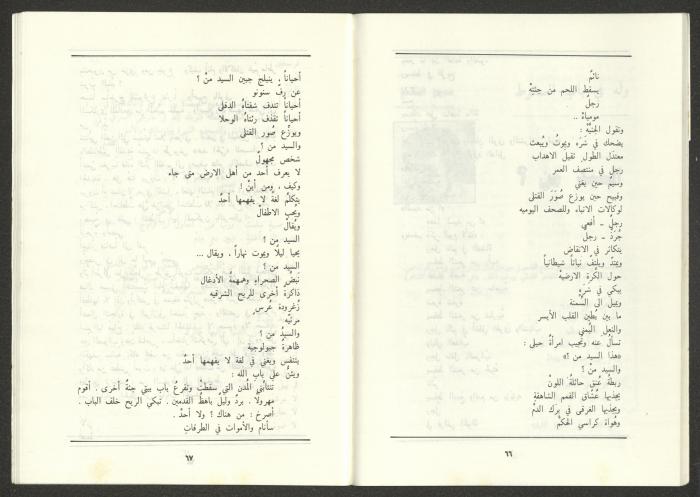 نائمٌ
يسقط اللحم من جثتِهِ
رجلٌ
مومياءٌ ..
وتقول الجنيّهْ :
يضحك في شَرَهٍ ويموتُ ويُبعث
معتدل الطول ثقيل الاهداب
رجل في منتصف العمر
وسيمٌ حين يغني
وقبيح حين يوزع صُوَرَ القتلى
لوكالات الانباء وللصحف اليوميه
رجلٌ ــ أفعى
جُرَذٌ ــ رجلٌ
يتكاثر في الانقاض
ويمتدُّ ويلتفّ نباتاً شيطانياً
حول الكرة الارضيهْ
يبكي في شَرَهٍ
ويميل الى السُّمنة
ما بين بُطين القلب الأيسر
والنعل اليُمنى
تسألُ عنه وتجيب امرأةٌ حبلى :
«هذا السيد من ؟»
والسيد منْ ؟
ربطةُ عنقٍ حائلةُ اللونْ
يجذبها عُشّاق القمم الشاهقةِ
ويجذبها الغرقى في بِرَك الدمْ
وهُواة كراسي الحكمْ
٦٦
أحياناً ينبلج جبين السيد منْ ؟
عن رفّ سنونو
أحياناً تندف شفتاهُ الدفلى
أحياناً تقذف رئتاهُ الوحلا
ويوزّع صُور القتلى
والسيد من ؟
شخص مجهولٌ
لا يعرف أحد من أهل الارض متى جاء
وكيف ، ومن أينْ !
يتكلّم لغة لا يفهمها أحدٌ
ويُحب الاطفالْ
ويُقالْ
السيد منْ !
يحيا ليلاً ويموت نهاراً . ويقال ...
السيد من !
نَبضُ الصحراءِ وهمهمةُ الأدغال
ذاكرةٌ أخرى للريح الشرقيه
زغرودةُ عُرسٍ
مرثيّه
والسيد من ؟
ظاهرة جيولوجية
يتنفس ويغني في لغة لا يفهمها أحدٌ
ويئنُّ على باب الله :
تنتابُني المدن التي سقطتْ وتقرعُ باب بيتي جثةٌ أخرى . أقوم
مهرولاً . بردٌ وليلٌ باهظُ القدمين . تبكي الريح خلف الباب .
أصرخ : من هناك ؟ ولا أحدٌ .
سأنام والأموات في الطرقاتِ
٦٧